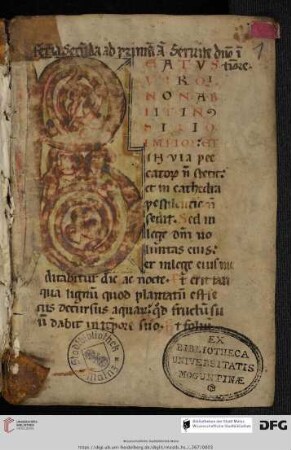 Feria Secunda ad primā ā Seruite dn̄o ī
timore.
1
B
EATVS
VIR QVI
NON AB
IIT IN
SILIO
IMPIOR̄ ET
IN uia pec
cator̄ n̄ stetit:
et in cathedra
pestilentie n̄
sedit. Sed in
lege dn̄i uo
luntas eius:
et in lege eius me
ditabitur die ac nocte. Et erit tan
qua lignum quod plantatū est se
cus decursus aquar̄: qd̄ fructum su
ū dabit in tpore suo. Et foliū
Stadtbibliothek
Mainz
EX
BIBLIOTHECA
UNIVERSITATIS
MOGUNTINÆ
Bibliotheken der Stadt Mainz
Wissenschaftliche Stadtbibliothek
DFG
Wissenschaftliche Stadtbibliothek Mainz